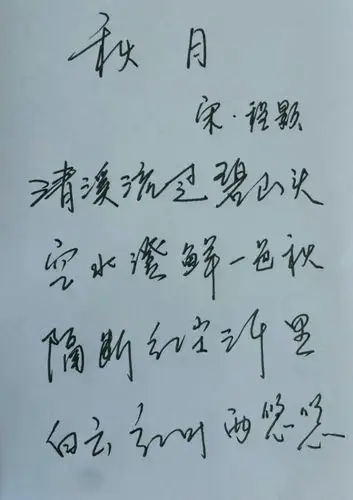 秋月
宋·程颢
清溪流过碧山头
空水澄鲜一色秋
隔断红尘三十里
白云红叶两悠悠